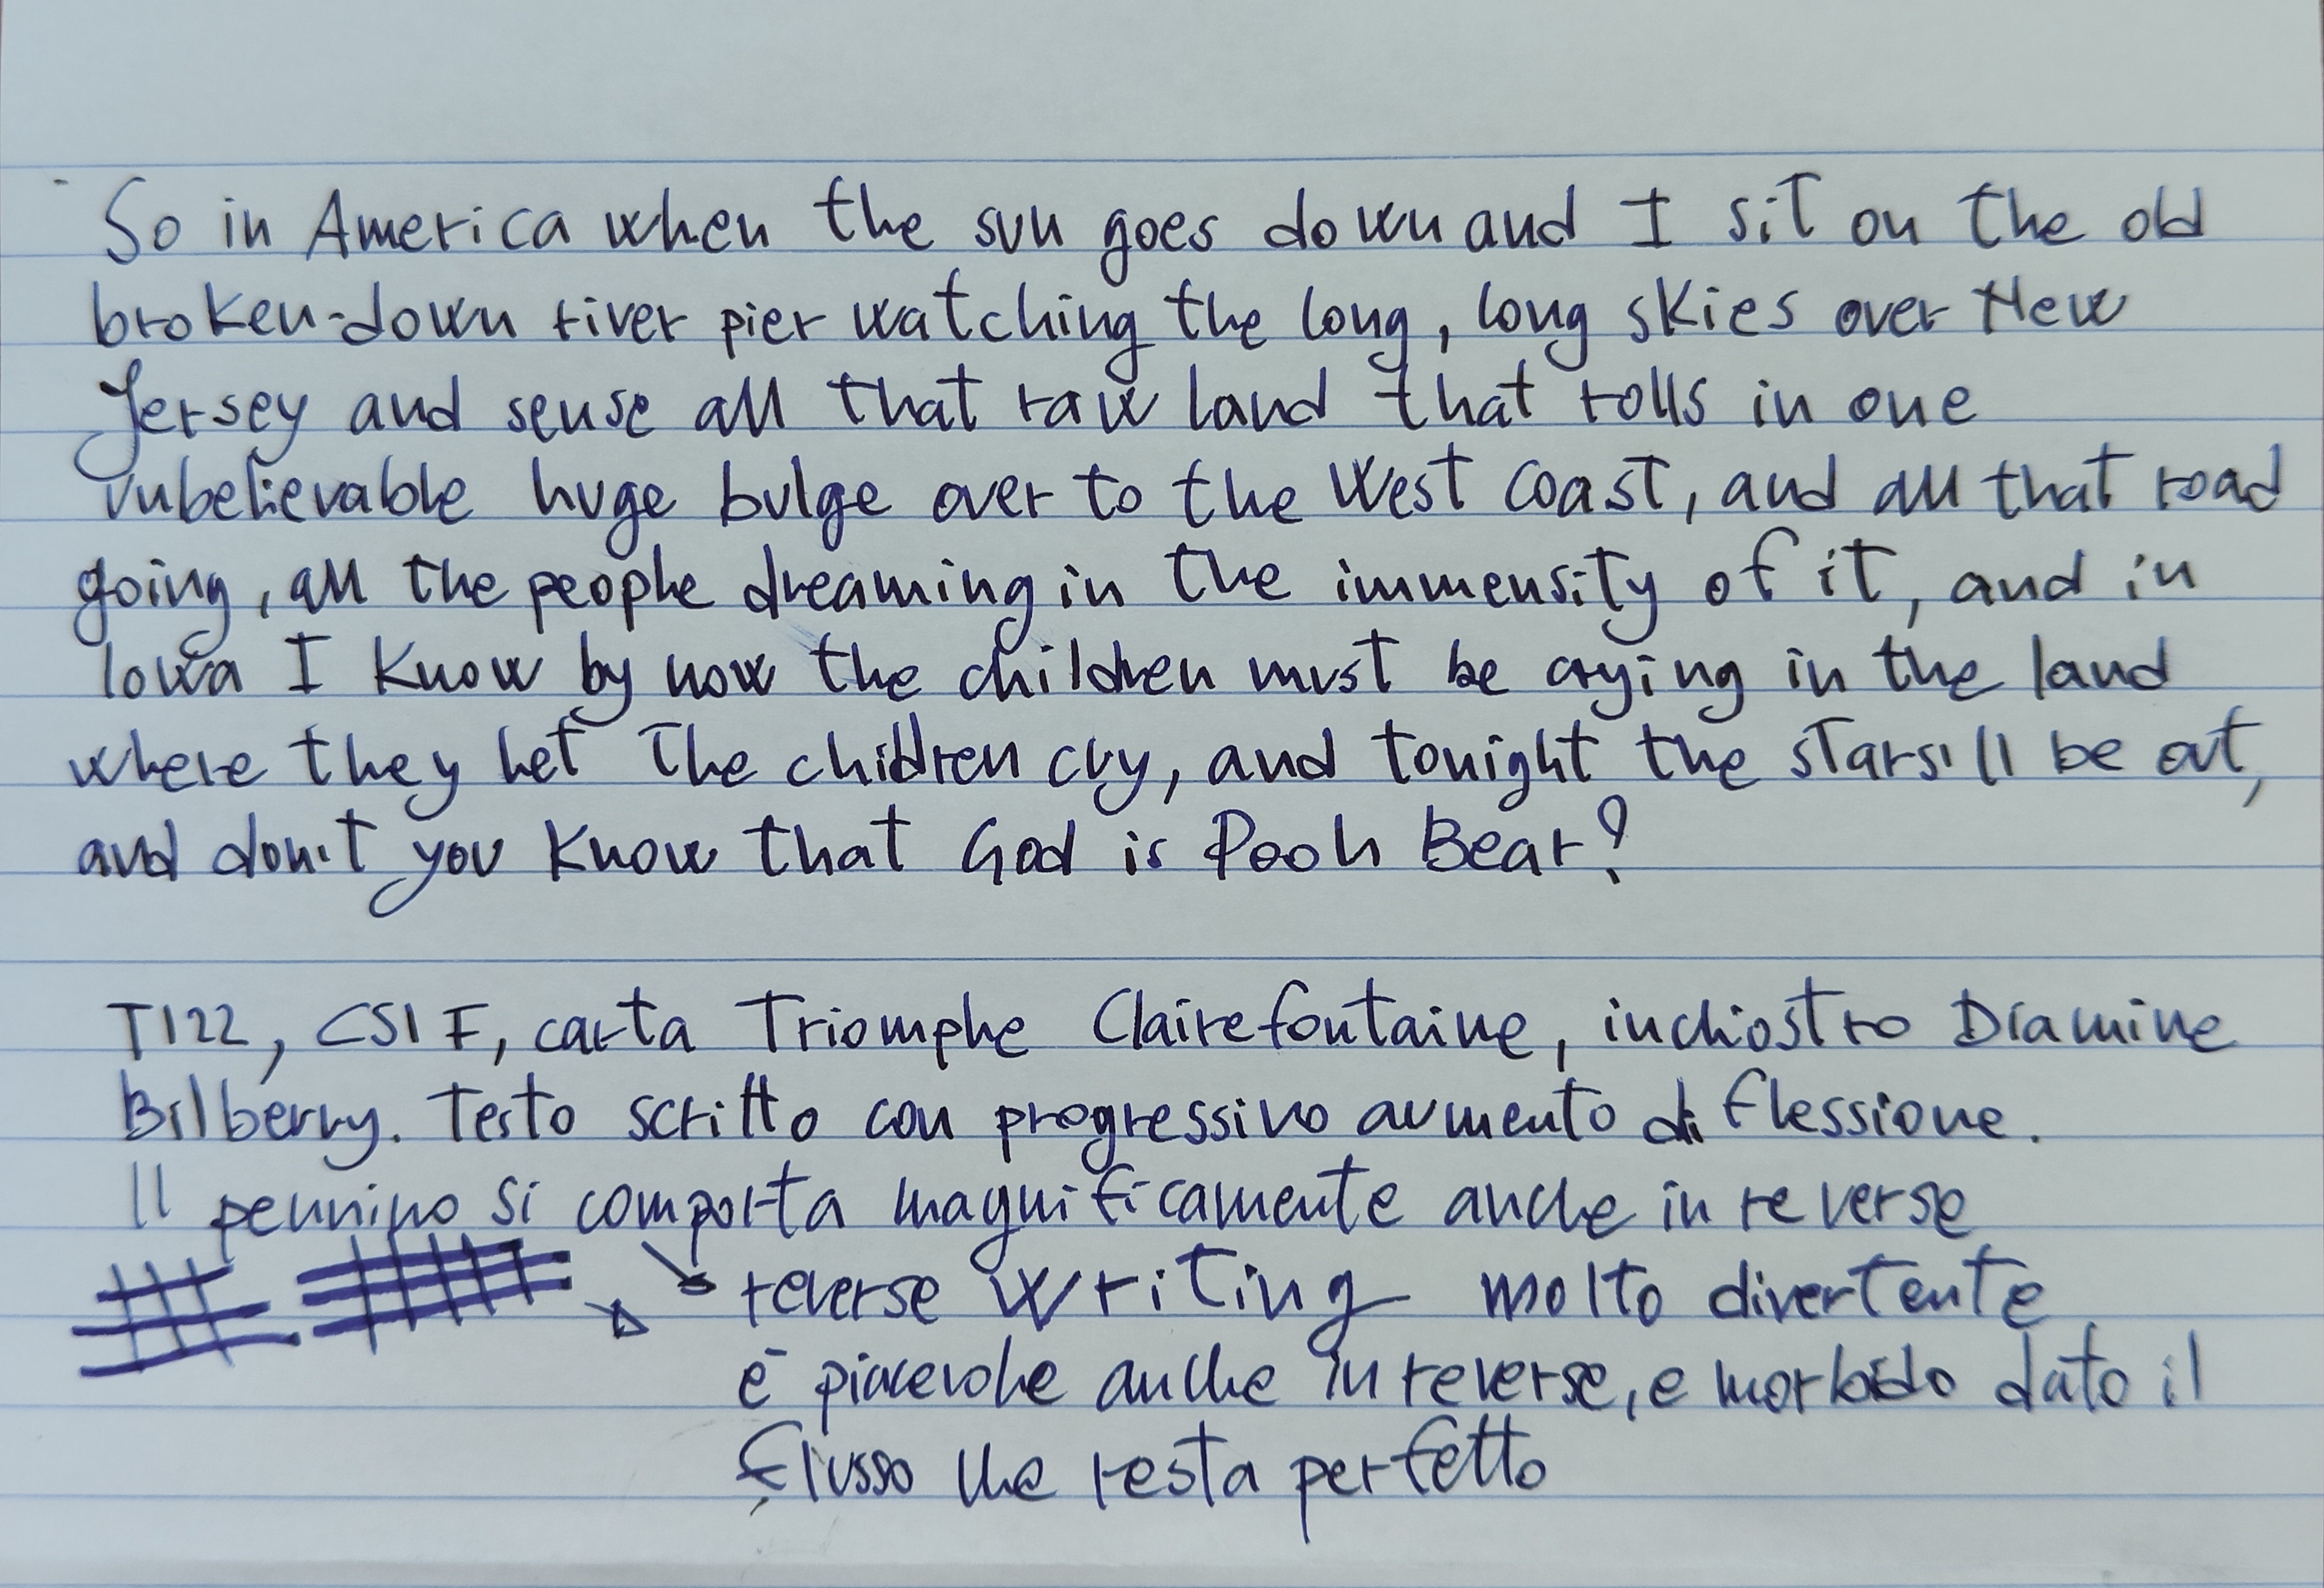 So in America when the sun goes down and I sit on the old
broken-down river pier watching the long, long skies over New
Jersey and sense all that raw land that rolls in one
unbelievable huge bulge over to the West Coast, and all that road
going, all the people dreaming in the immensity of it, and in
Iowa I know by now the children must be crying in the land
where they let the children cry, and tonight the stars'll be out,
and don't you know that God is Pooh Bear?
T122, CSI F, carta Triomphe Clairefontaine, inchiostro Diamine
Bilberry. Testo scritto con progressivo aumento di flessione.
Il pennino si comporta magnificamente anche in reverse
reverse writing molto divertente
è piacevole anche in reverse, e morbido dato il
flusso che resta perfetto